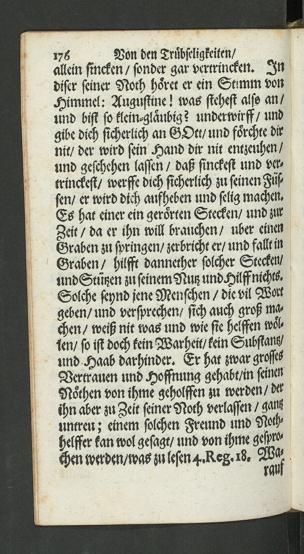 176 Von den Trübseligkeiten/
allein sincken/ sonder gar vertrincken. In
diser seiner Noth höret er ein Stimm von
Himmel: Augustine! was stehest also an/
und bist so klein-gläubig? underwirff/ und
gibe dich sicherlich an GOtt/ und förchte dir
nit/ der wird sein Hand dir nit entzeuhen/
und geschehen lassen/ daß sinckest und ver-
trinckest/ werffe dich sicherlich zu seinen Füs-
sen/ er wird dich aufheben und selig machen.
Es hat einer ein gerörten Stecken/ und zur
Zeit/ da er ihn will brauchen/ uber einen
Graben zu springen/ zerbricht er/ und fallt in
Graben/ hilfft dannether solcher Stecken/
und Stützen zu seinem Nutz und Hilff nichts.
Solche seynd jene Menschen/ die vil Wort
geben/ und versprechen/ sich auch groß ma-
chen/ weiß nit was und wie sie helffen wöl-
len/ so ist doch kein Warheit/ kein Substantz/
und Haab darhinder. Er hat zwar grosses
Vertrauen und Hoffnung gehabt/ in seinen
Nöthen von ihme geholffen zu werden/ der
ihn aber zu Zeit seiner Noth verlassen/ gantz
untreu; einem solchen Freund und Noth-
helffer kan wol gesagt/ und von ihme gespro-
chen werden/ was zu lesen 4. Reg. 18. Wa-
rauf